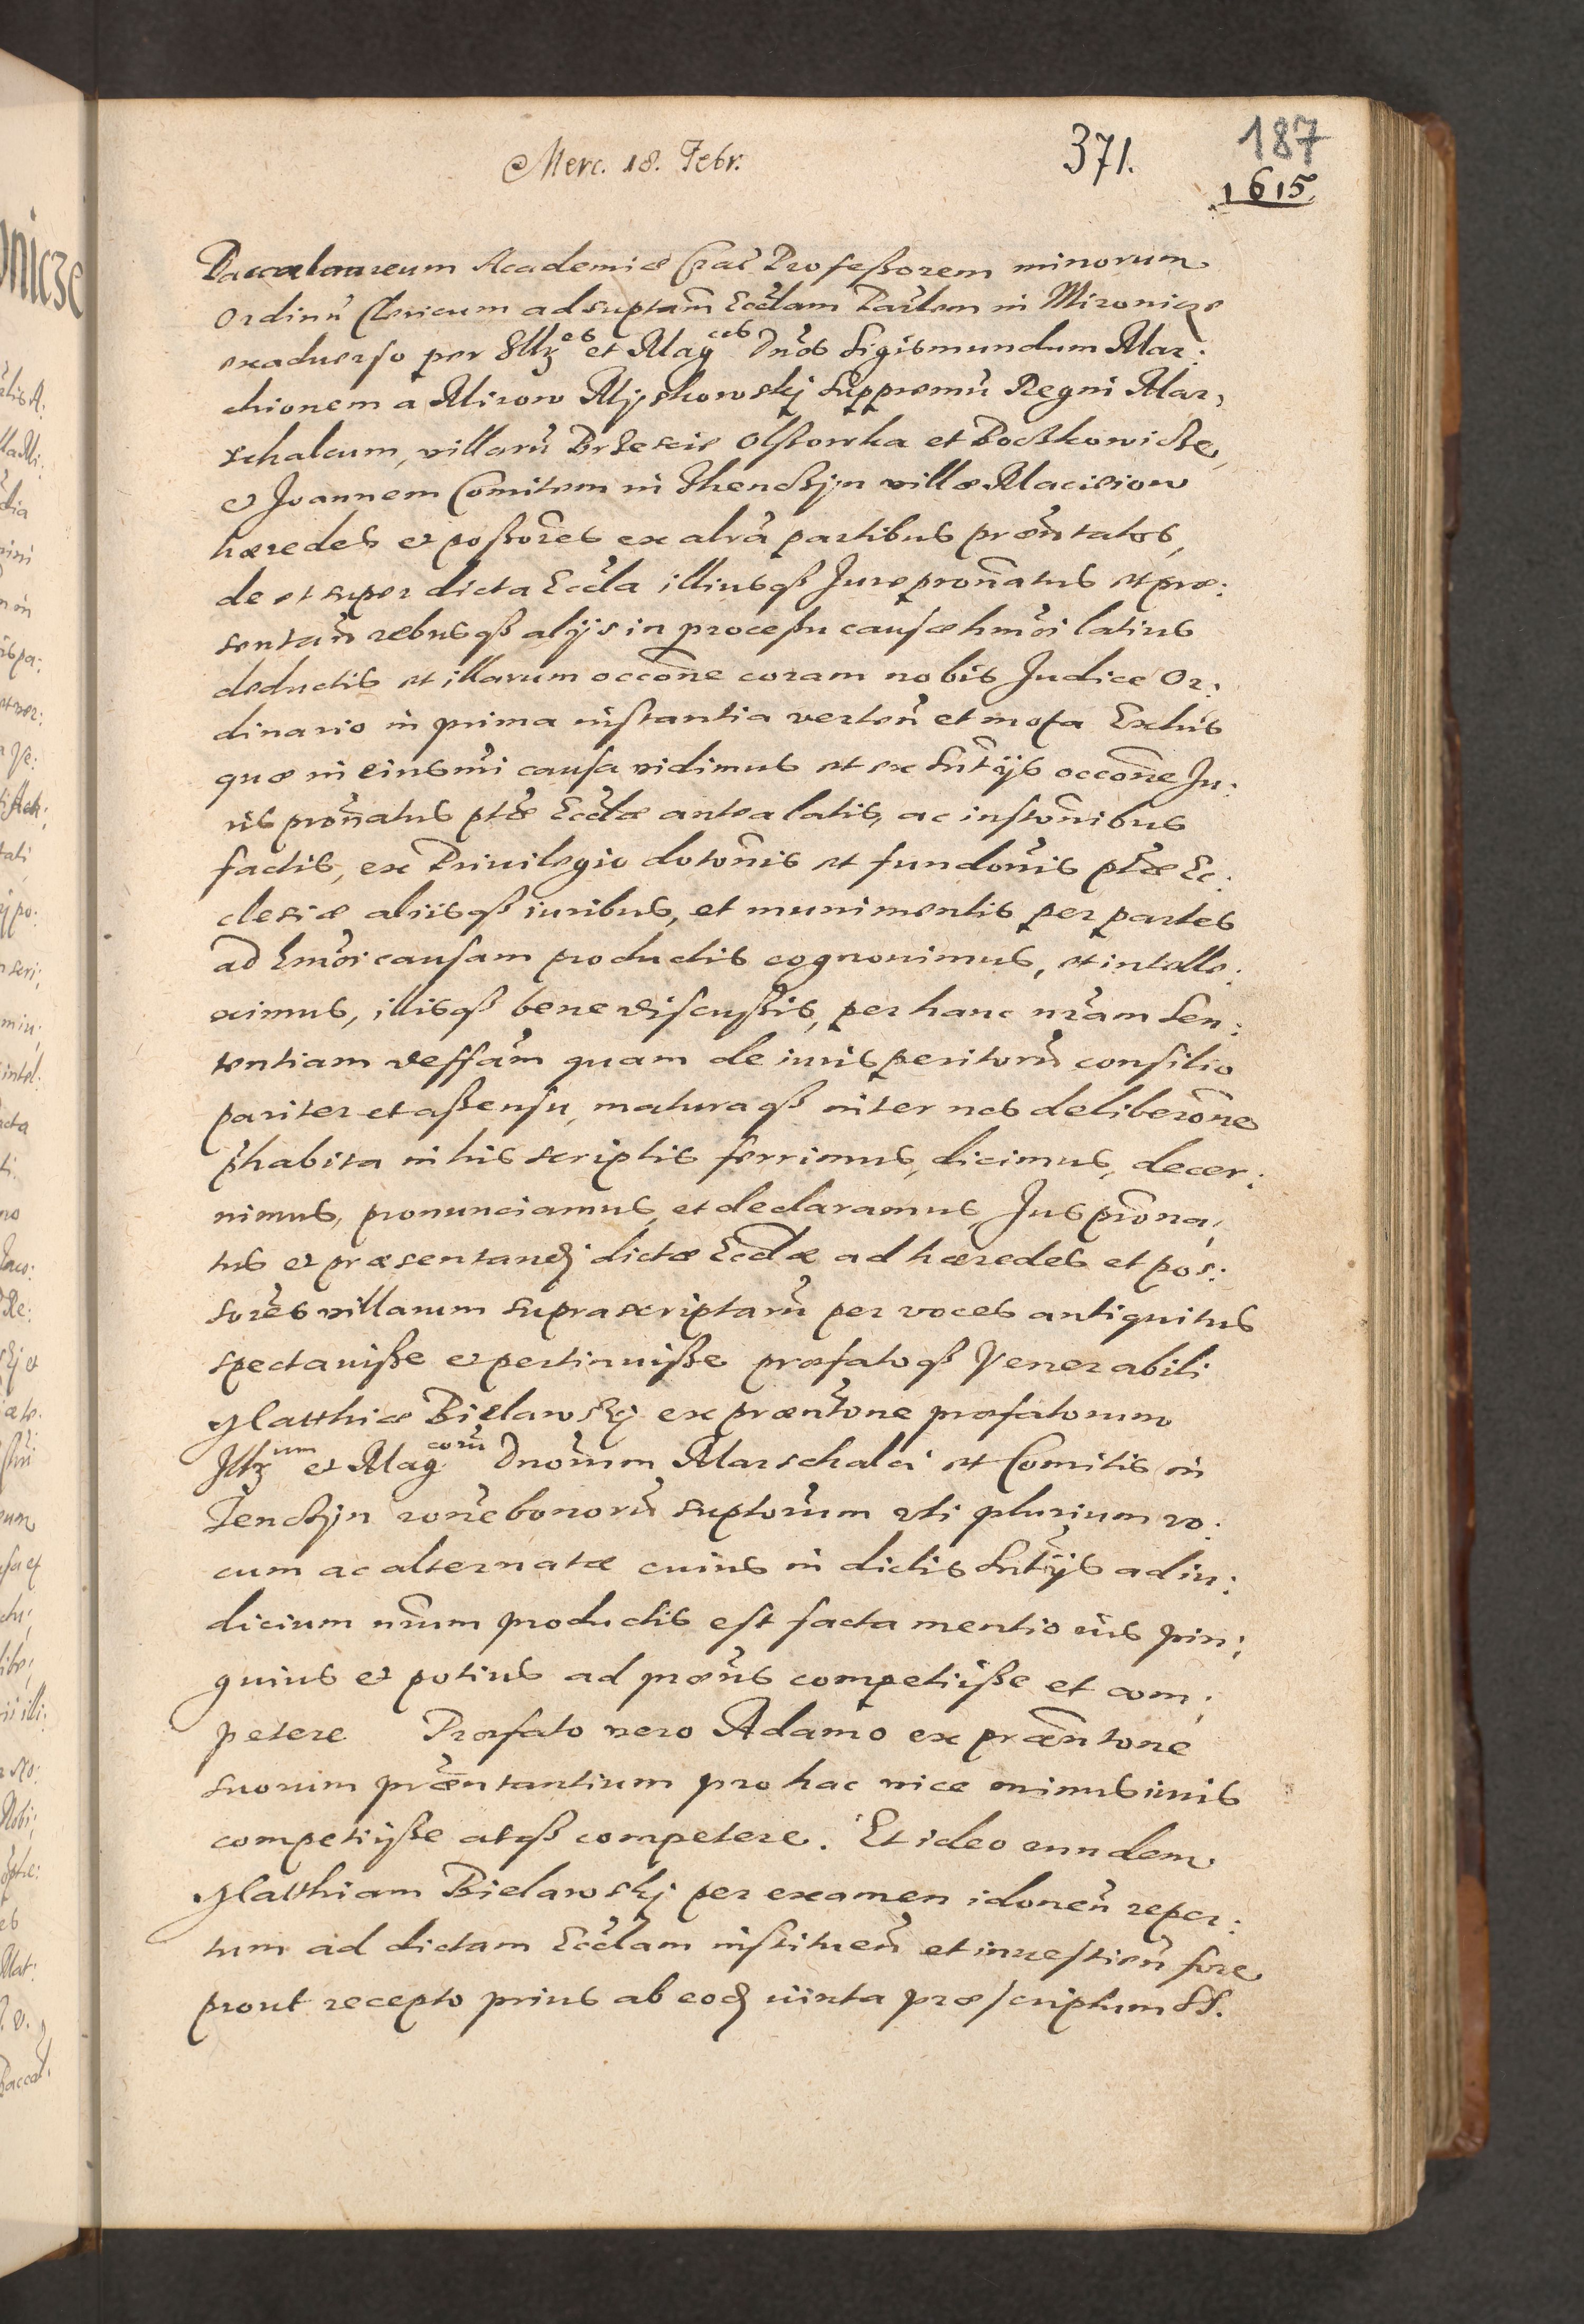 Merc. 18. Febr.
371.
187
1615
Baccalaureum Academiæ Crac Professorem minorum
Ordinũ Clericum ad suptam Eccłam Parlem in Mironicze
exaduerso per Illꝫ^es et Mag^cos Dnos Sigismundum Mar:
chionem a Mirow Myszkowskj Suppremũ Regni Mar,
schalcum, villarũ Brzescie Olssowka et Boczkowicze,
et Joannem Comitem in Thenczyn villæ Macieiow
hæredes et possores ex altra partibus præntatos,
de et super dicta Eccla illiusqꝫ Jure pronatus et præ:
sentań rebusqꝫ alijs in processu causæ hmoi latius
deductis et illarum occone coram nobis Judice Or:
dinario in prima instantia verteñ et mota Ex his
quæ in eiusmi causa vidimus et ex Sntijs occone Ju:
ris pronatus ptæ Ecclæ antea latis, ac instonibus
factis, ex Priuilegio dotonis et fundonis ptæ Ec:
clesiæ aliisqꝫ iuribus, et munimentis per partes
ad hmoi causam productis cognouimus, et intelle:
ximus, illisqꝫ bene discussis, per hanc nram Sen:
tentiam deffam quam de iurisperitorũ consilio
pariter et assensu, maturaqꝫ inter nos deliberone
phabita in his scriptis ferrimus, dicimus, decer:
nimus, pronunciamus, et declaramus, Jus prona,
tus et præsentandj dictæ Ecclæ ad hæredes et pos:
sores villarum suprascriptarũ per voces antiquitus
spectauisse et pertinuisse præfatoqꝫ Venerabili
Matthiæ Bielawskj ex præntone præfatorum
Illꝫ^um et Mag^corũ Dnorum Marschalci et Comitis in
Tenczyn rone bonorũ suptorum vti plurium vo:
cum ac alternatæ cuius in dictis Sntijs ad iu:
dicium nrum productis est facta mentio ius pin:
guius et potius ad præns competiisse et com:
petere Præfato vero Adamo ex præntone
suorum præntantium pro hac vice minus iuris
competijsse atqꝫ competere. Et ideo eundem
Matthiam Bielawskj per examen idoneũ reper:
tum ad dictam Ecclam instituen et inuestien fore
prout recepto prius ab eodꝫ iuxta præscriptum SS.